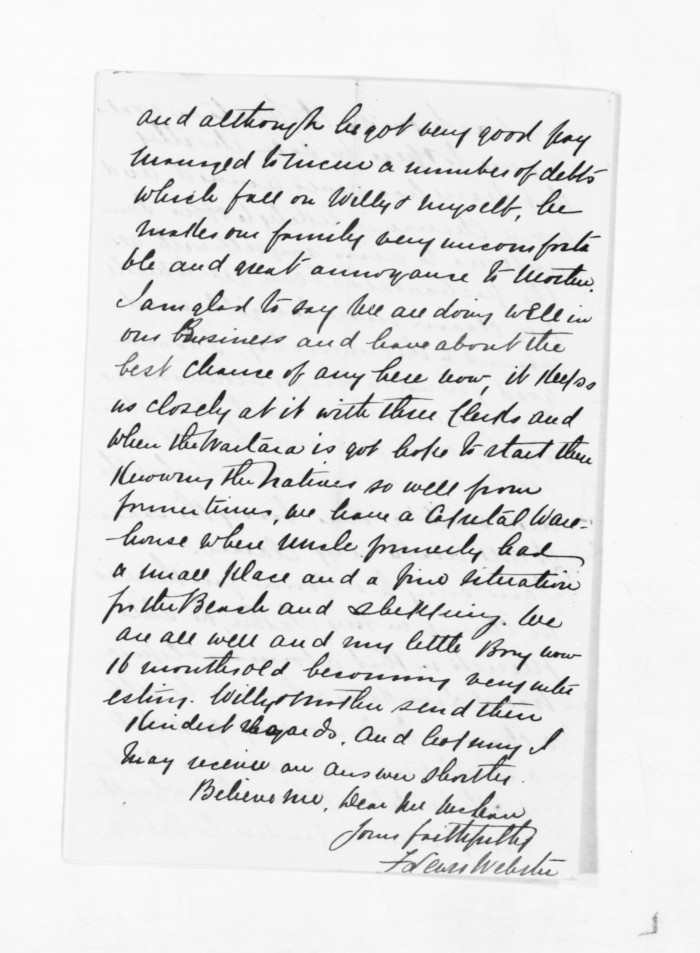 and although he got very good pay
managed to incur a number of debts
which fall on Willy & myself, he
makes our family very uncomforta
ble and great annoyance to Mother.
I am glad to say we are doing well in
our Business and have about the
best chance of any here now, it keeps
us closely at it with three Clerks and
when the Waitara is got hope to start there
Knowing the Natives so well from
former times, we have a Capital Ware-
house where Uncle formerly had
a small place and a fine situation
for the Beach and shipping. We
are all well and my little Boy now
16 months old becoming very inter
esting. Willy & Mother send their
Kindest regards, and hoping I
may receive an answer shortly.
Believe me, Dear Mr McLean
Yours faithfully
F Lewis Webster